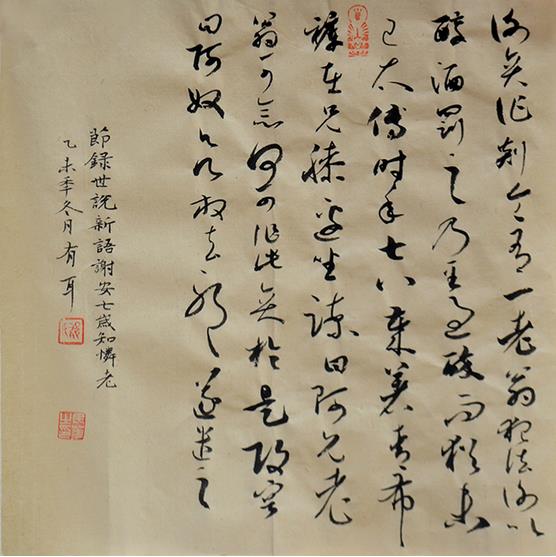 謝奕作剡令有一老翁犯法謝以
醇酒罰之乃至過醉而猶未
已太傅時年七八歲著青布
褲在兄膝邊坐諫曰阿兄老
翁可念何可作此奕於是改容
曰阿奴欲放去邪遂遣之
節錄世說新語謝安七歲知憐老
乙未季冬月有耳